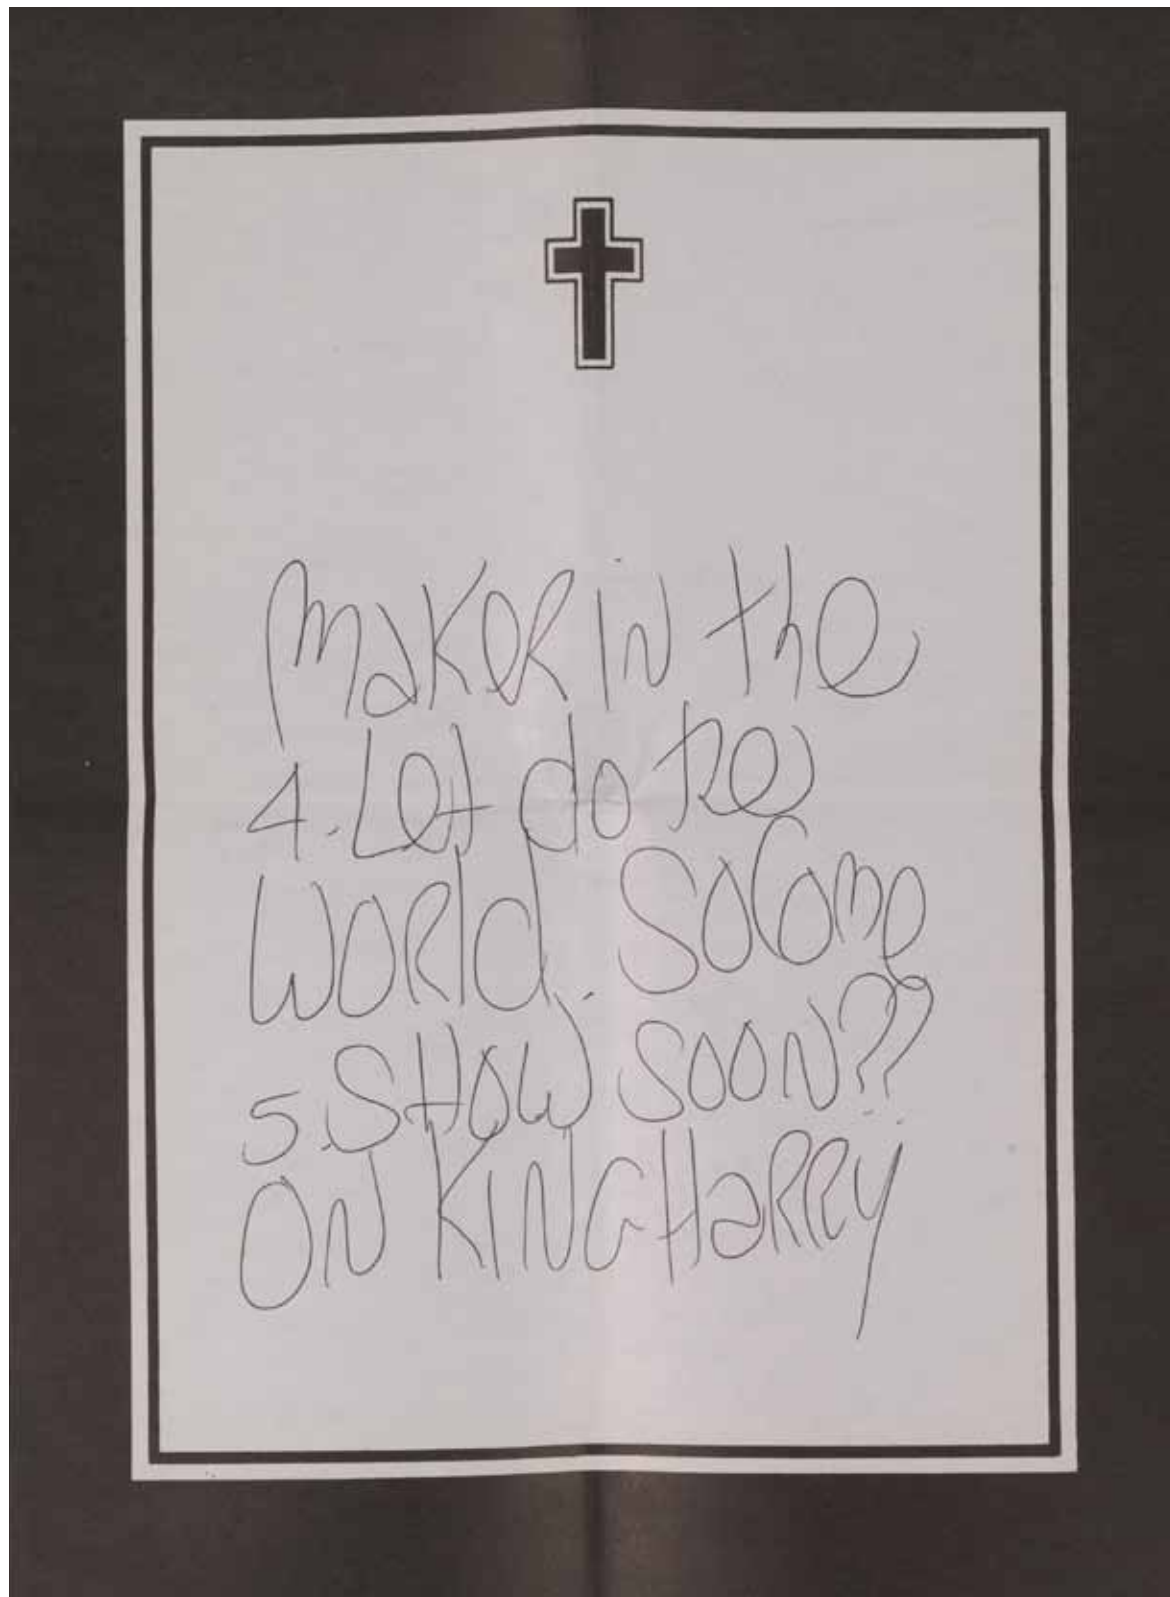 Maker in the
4. Let do the
World. So Come
5. SHOW SOON??
ON KING HaRRy